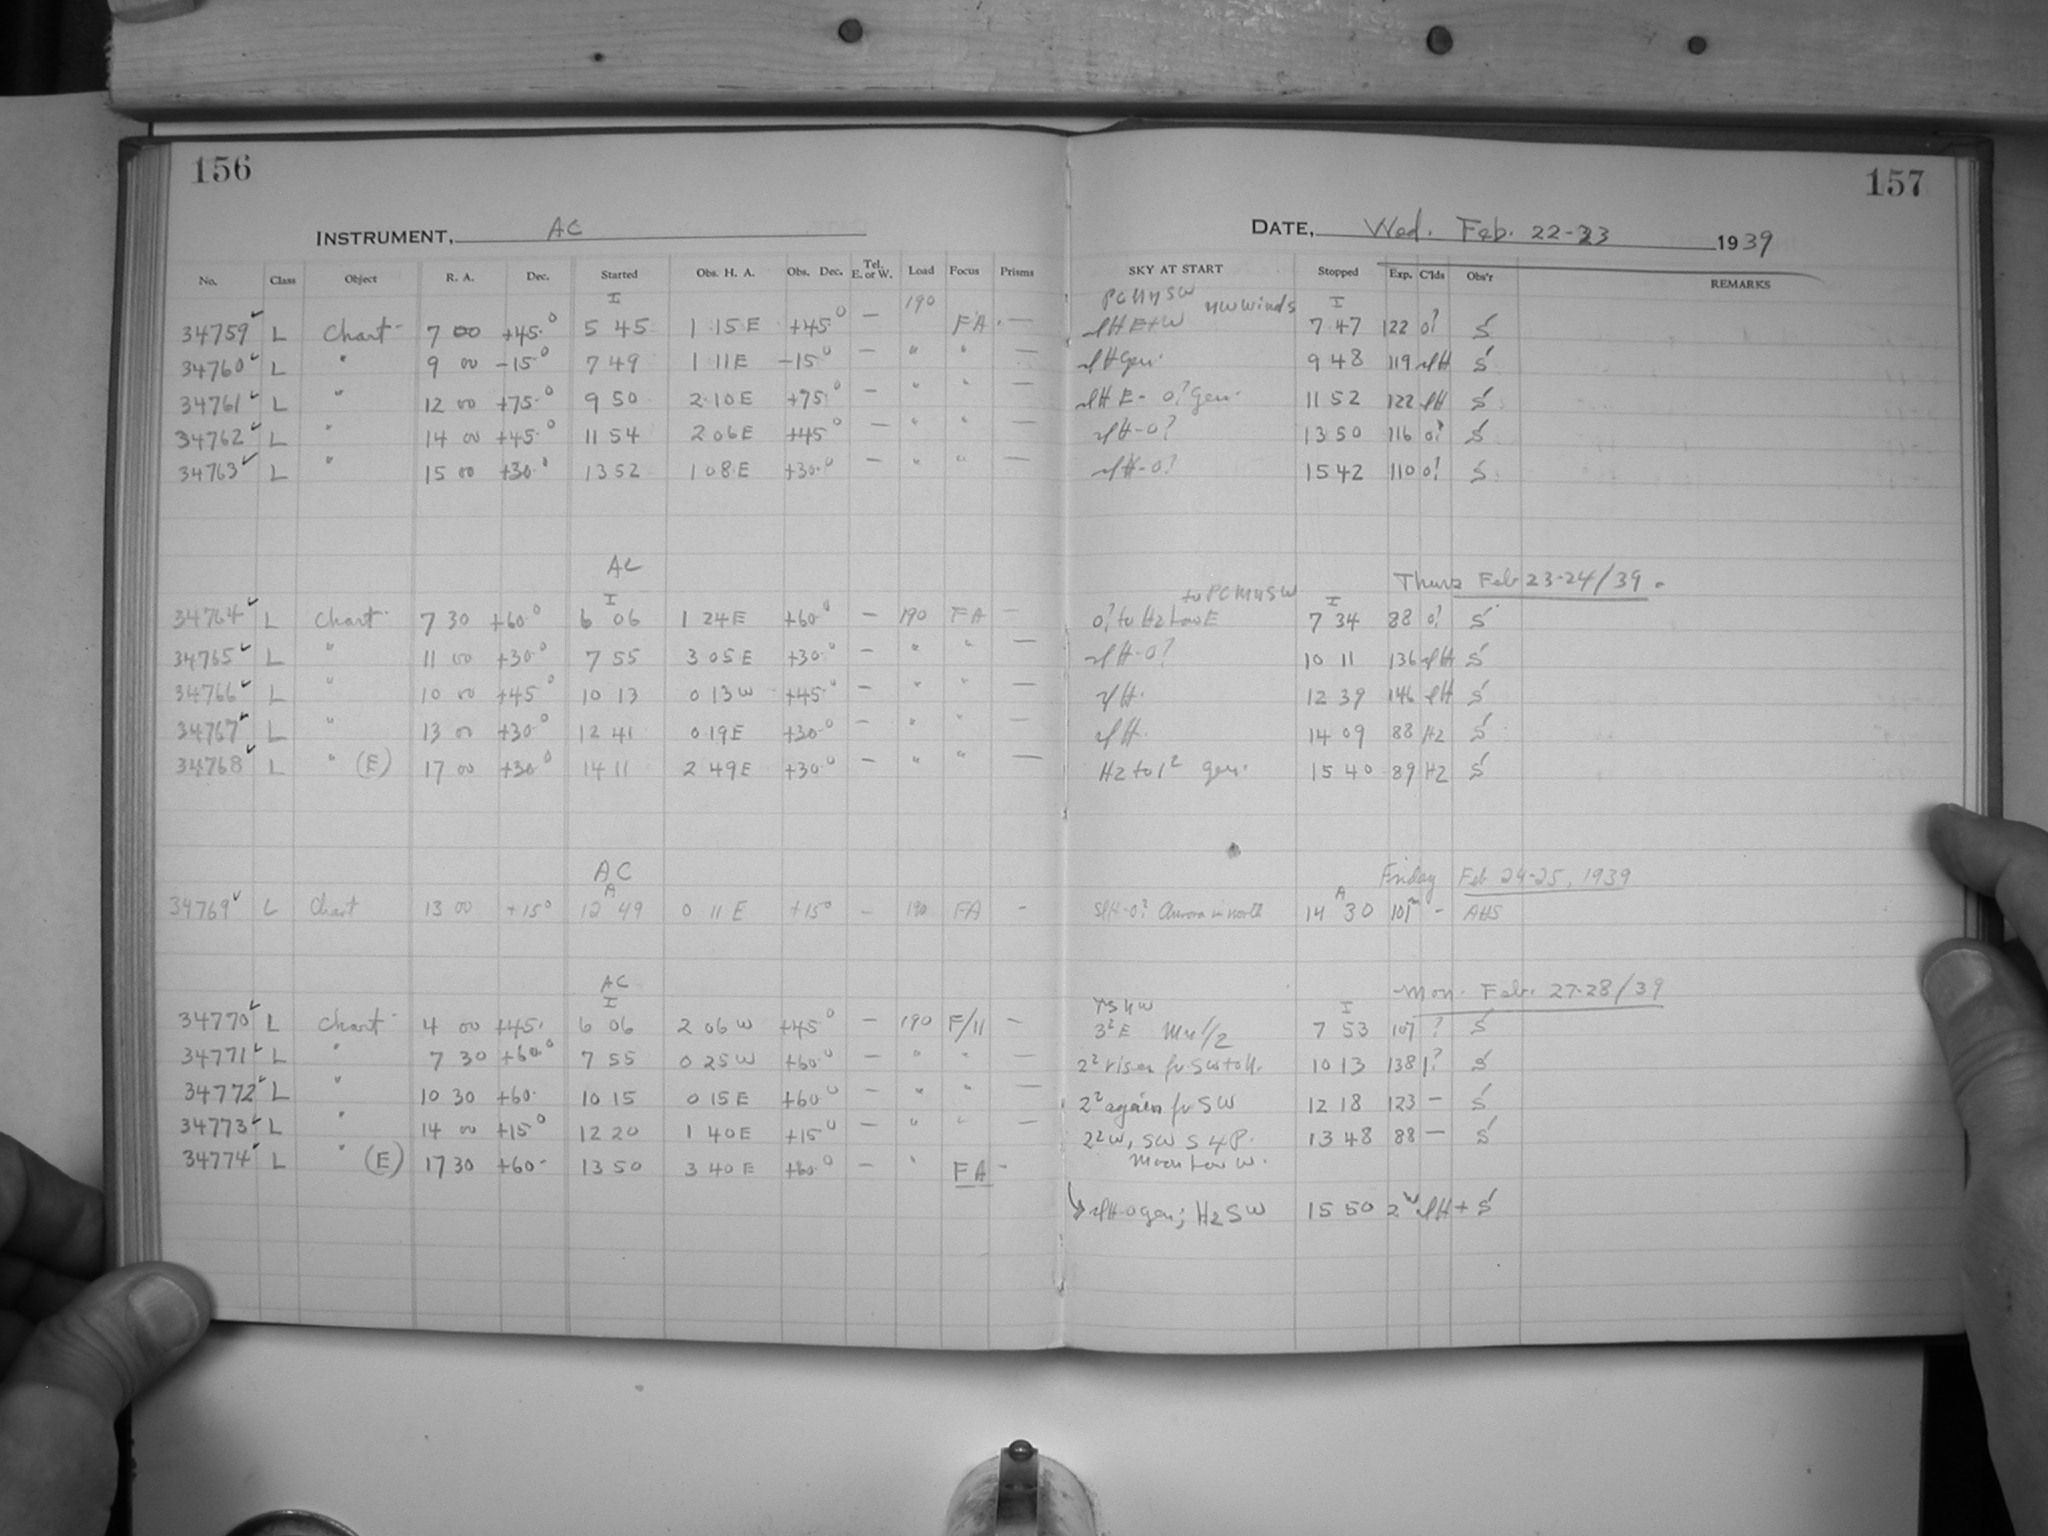 156
INSTRUMENT, AC
No. Class Object R. A. Dec. Started Obs. H. A. Obs. Dec. Tel. E. or W. Load Focus Prisms
I 190
34759 L Chart 7 00 +45° 5 45 1 15 E +45° — FA —
34760 L " 9 00 -15° 7 49 1 11 E -15° — " " —
34761 L " 12 00 +75° 9 50 2 10 E +75° — " " —
34762 L " 14 00 +45° 11 54 2 06 E +45° — " " —
34763 L " 15 00 +30° 13 52 1 08 E +30° — " " —
AC
I
34764 L Chart 7 30 +60° 6 06 1 24 E +60° — 190 FA —
34765 L " 11 00 +30° 7 55 3 05 E +30° — " " —
34766 L " 10 00 +45° 10 13 0 13 W +45° — " " —
34767 L " 13 00 +30° 12 41 0 19 E +30° — " " —
34768 L " (E) 17 00 +30° 14 11 2 49 E +30° — " " —
AC
A
34769 L Chart 13 00 +15° 12 49 0 11 E +15° — 190 FA -
AC
I
34770 L Chart 4 00 +45° 6 06 2 06 W +45° — 190 F/11 —
34771 L " 7 30 +60° 7 55 0 25 W +60° — " " —
34772 L " 10 30 +60° 10 15 0 15 E +60° — " " —
34773 L " 14 00 +15° 12 20 1 40 E +15° — " " —
34774 L " (E) 17 30 +60° 13 50 3 40 E +60° — " FA -
157
DATE, Wed. Feb. 22-23 1939
SKY AT START Stopped Exp. C'lds Obs'r REMARKS
NW winds I
slH E+W 7 47 122 0? S
slH gen. 9 48 119 slH S
slH E - 0? gen. 11 52 122 slH S
slH-0? 13 50 116 0? S
slH-0? 15 42 110 0? S
Thurs Feb 23-24/39.
I
0? to Hz Low E 7 34 88 0? S
slH-0? 10 11 136 slH S
slH. 12 39 146 slH S
slH. 14 09 88 Hz S
Hz to 1² gen. 15 40 89 Hz S
Friday Feb 24-25, 1939
A
slH-0? Aurora in north 14 30 101m - AHS
Mon. Feb. 27-28/39
I
3² E 1/2 7 53 107 ? S
2² 10 13 138 1? S
2² again fr SW 12 18 123 — S
2² W, SW 13 48 88 — S
Moon Low W.
slH-0 gen; Hz SW 15 50 2 slH+ S